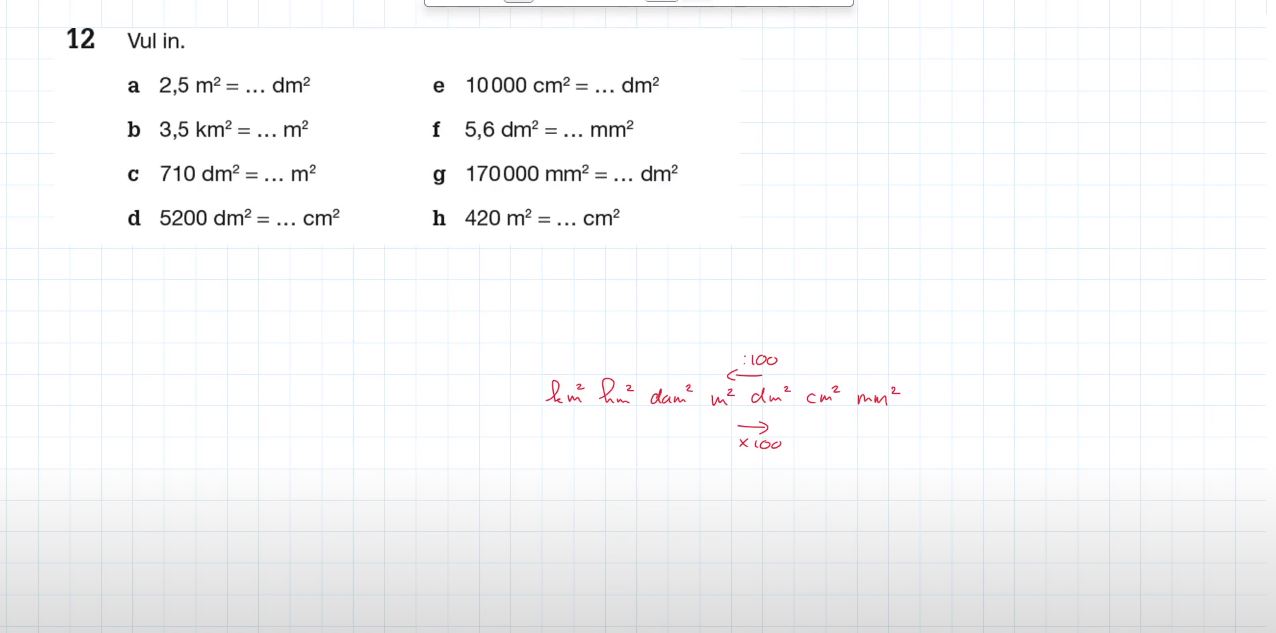 12 Vul in.
a 2,5 m² = … dm²
b 3,5 km² = … m²
c 710 dm² = … m²
d 5200 dm² = … cm²
e 10 000 cm² = … dm²
f 5,6 dm² = … mm²
g 170 000 mm² = … dm²
h 420 m² = … cm²
:100
←
km² hm² dam² m² dm² cm² mm²
→
×100